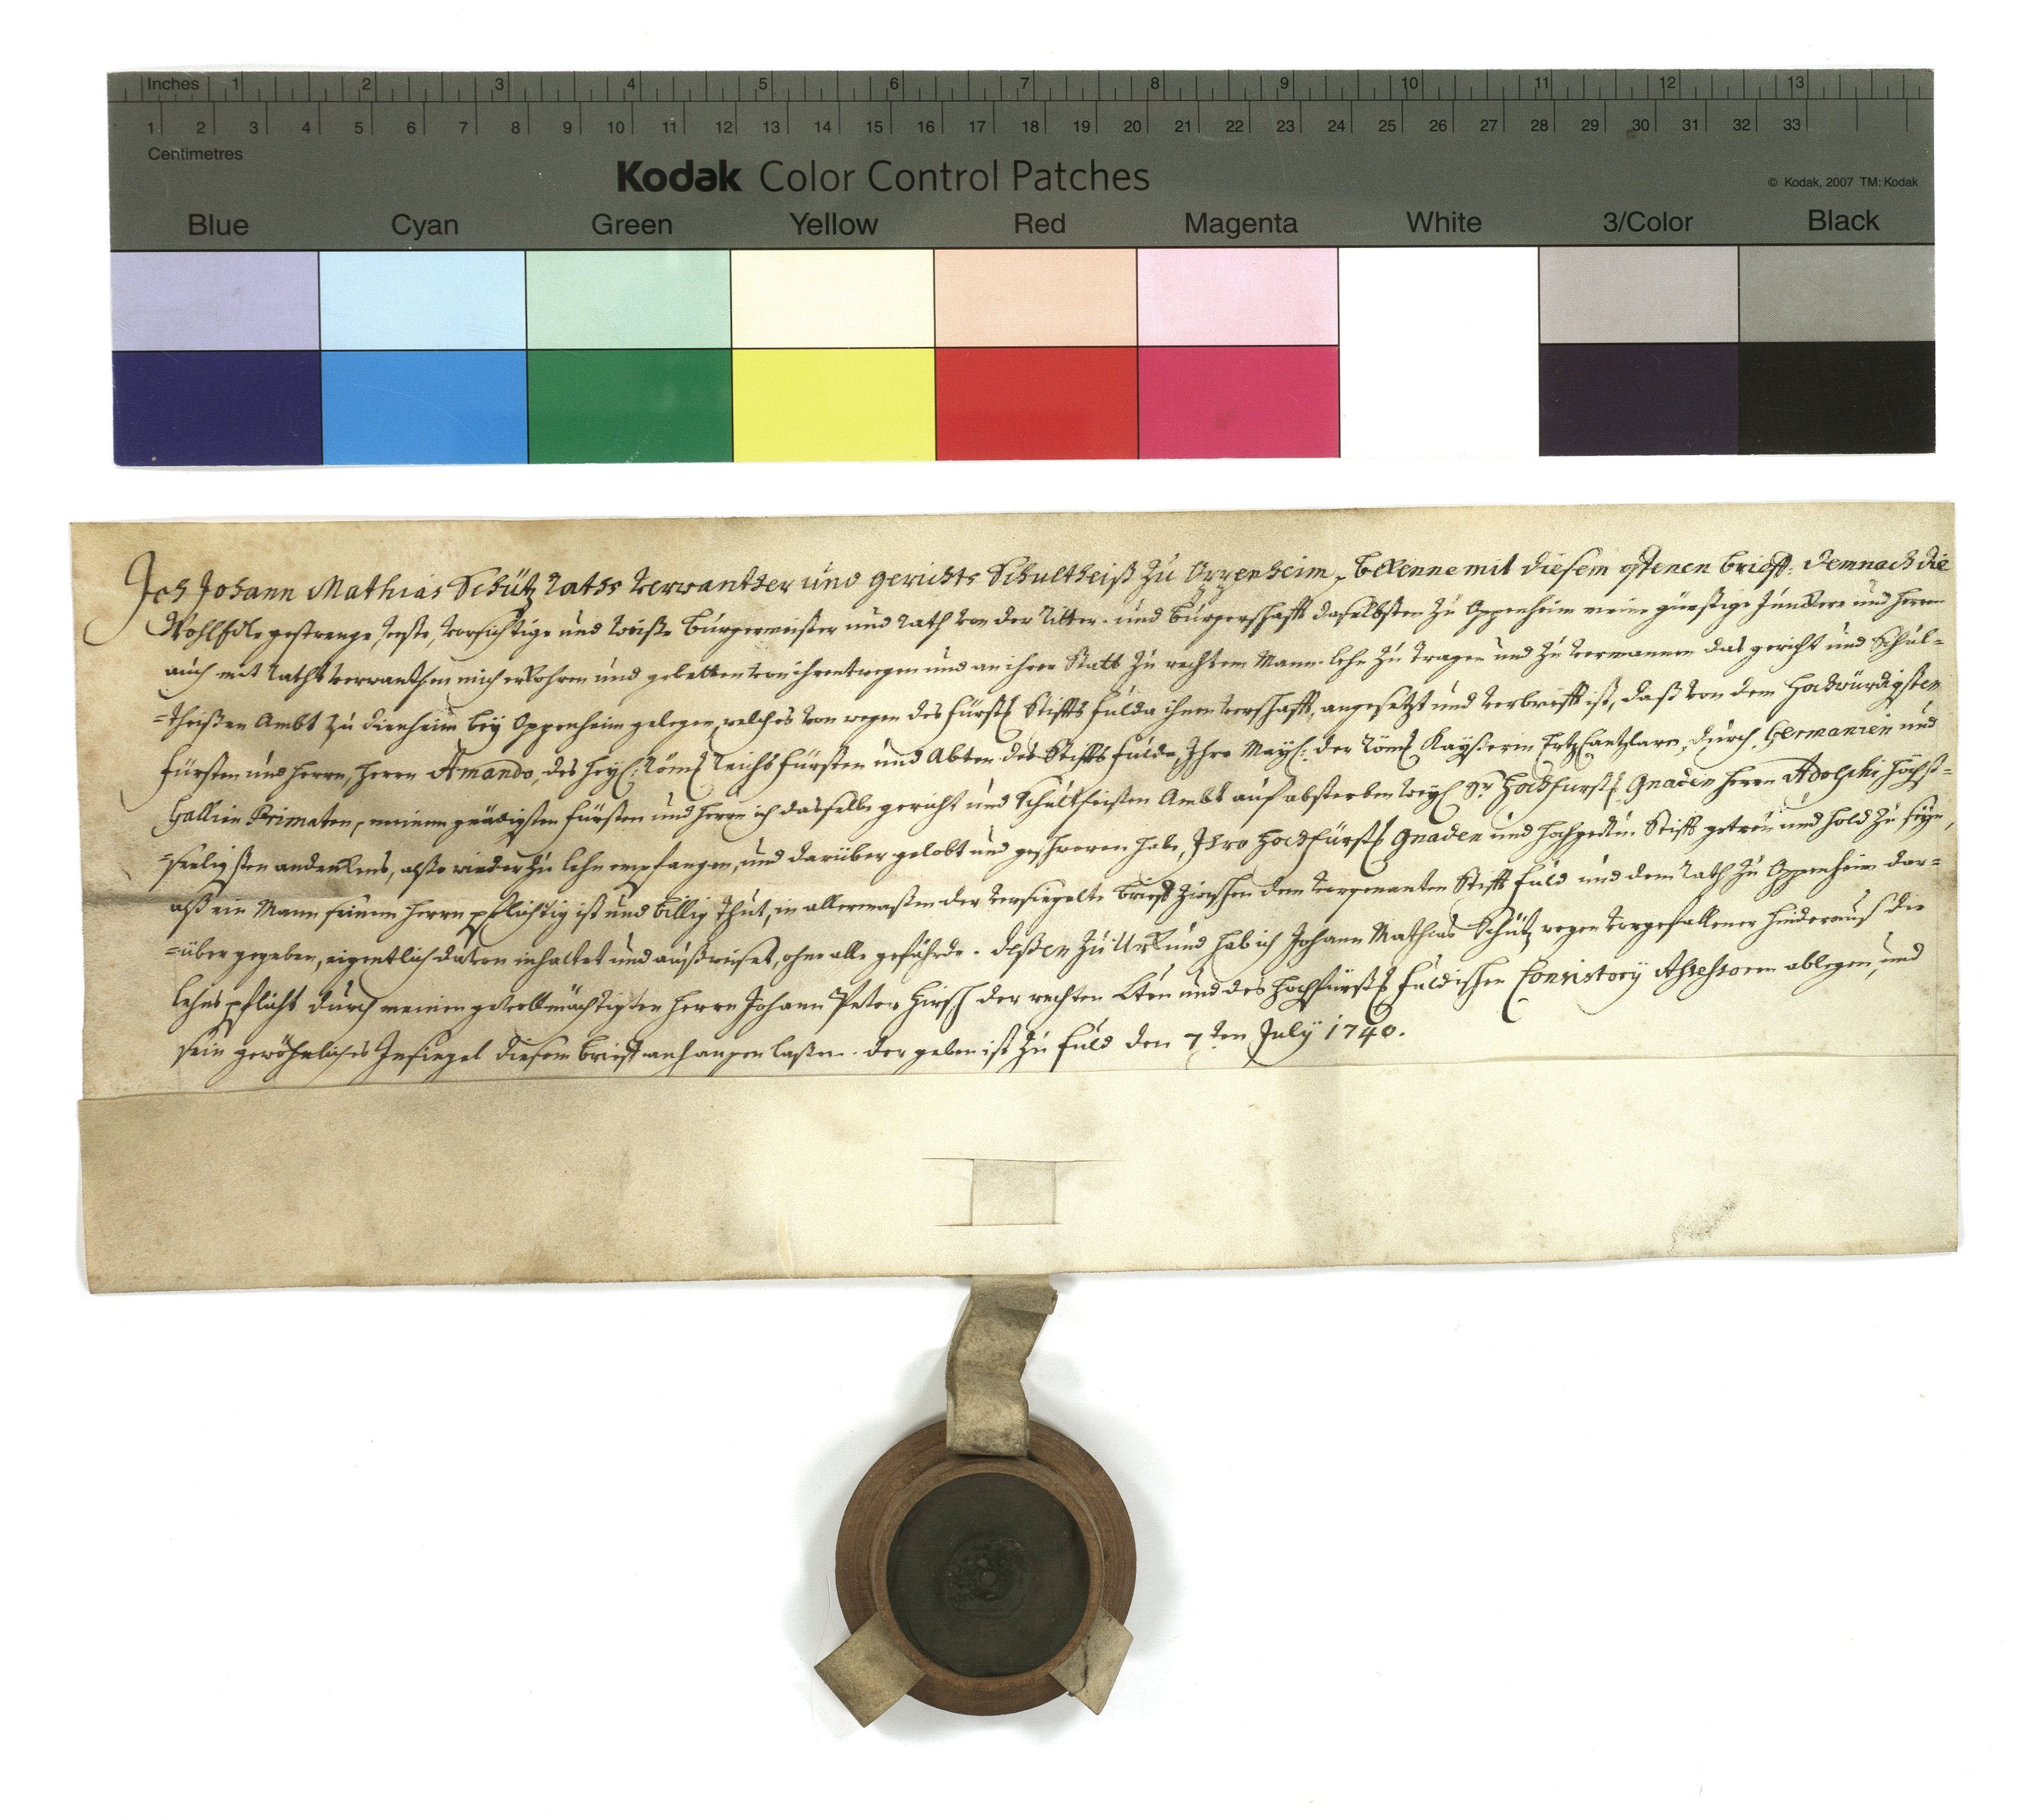 Inches 1 2 3 4 5 6 7 8 9 10 11 12 13
1 2 3 4 5 6 7 8 9 10 11 12 13 14 15 16 17 18 19 20 21 22 23 24 25 26 27 28 29 30 31 32 33
Centimetres
Kodak Color Control Patches
© Kodak, 2007 TM: Kodak
Blue Cyan Green Yellow Red Magenta White 3/Color Black
Ich Johann Mathias Schütz raths verwanther und gerichts Schultheiß zu Oppenheim, bekenne mit diesem offenen brieff: demnach die
WohlEdle gestrenge, veste, vorsichtige und weiße Bürgermeister und rath von der Ritter- und Bürgerschafft daselbsten zu Oppenheim meine günstige Junckere und herrn
auch mit raths verwanthen mich erkohren und gebetten von ihrentwegen und an ihrer Statt zu rechtem Mann-lehn zu tragen und zu vermannen das gericht und Schul-
=theißen Ambt zu Dienheim bey Oppenheim gelegen, welches von wegen des fürstl Stiffts fulda ihnen verschafft, angesetzt und verbriefft ist, daß von dem Hochwürdigsten
fürsten und herrn, herrn Amando, des heyl: röml Reichs fürsten und Abten des Stiffts fulda, Ihro Mayl: der Röml Kayßerin Ertzcantzlarn, durch Germanien und
Gallien Primaten, meinem gnädigsten fürsten und herrn ich dasselbe gericht und Schultheißen Ambt auf absterben weyl Sr Hochfürstl Gnaden herrn Adolphi höchst=
=seeligsten andenckens, alßo wieder zu lehn empfangen, und darüber gelobt und geschworen habe, Ihro Hochfürstl Gnaden und hochgedtm Stifft getreu und hold zu seyn,
alß ein Mann seinem herrn pflichtig ist und billig thut, in allermaßen der versiegelte brieff zwischen dem vorgenanten Stifft fuld und dem rath zu Oppenheim dar=
=über gegeben, eigentlich davon inhaltet und außweiset, ohne alle gefährde. Deßen zu Urkund hab ich Johann Mathias Schütz wegen vorgefallener hindernuß die
lehns pflicht durch meinen gevollmächtigten herrn Johann Peter Hirsch der rechten Ltn und des hochfürstl fuldischen Consistorÿ Assessorem ablegen, und
sein gewöhnliches Insiegel diesem brieff anhangen laßen. der geben ist zu fuld den 7ten Julÿ 1740.